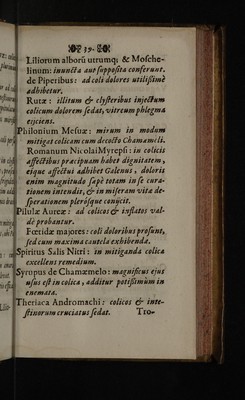 39.
Liliorum alborũ utrumq; & Mosche-
linum: inuncta aut supposita conferunt.
de Piperibus: ad coli dolores utilissimè
adhibetur.
Rutæ: illitum & clysteribus injectum
colicum dolorem sedat, vitreum phlegma
ejiciens.
Philonium Mesuæ: mirum in modum
mitigat colicam cum decocto Chamæmili.
Romanum Nicolai Myrepsi: in colicis
affectibus præcipuam habet dignitatem,
eique affectui adhibet Galenus, doloris
enim magnitudo sæpè totam in se cura-
tionem intendit, & in miseram vitæ de-
sperationem plerósque conijcit.
Pilulæ Aureæ: ad colicas & inflatos val-
dè probantur.
Fœtidæ majores: coli doloribus prosunt,
sed cum maxima cautela exhibendæ.
Spiritus Salis Nitri: in mitiganda colica
excellens remedium.
Syrupus de Chamæmelo: magnificus ejus
usus est in colica, additur potissimùm in
enemata.
Theriaca Andromachi: colicos & inte-
stinorum cruciatus sedat.
Tro-